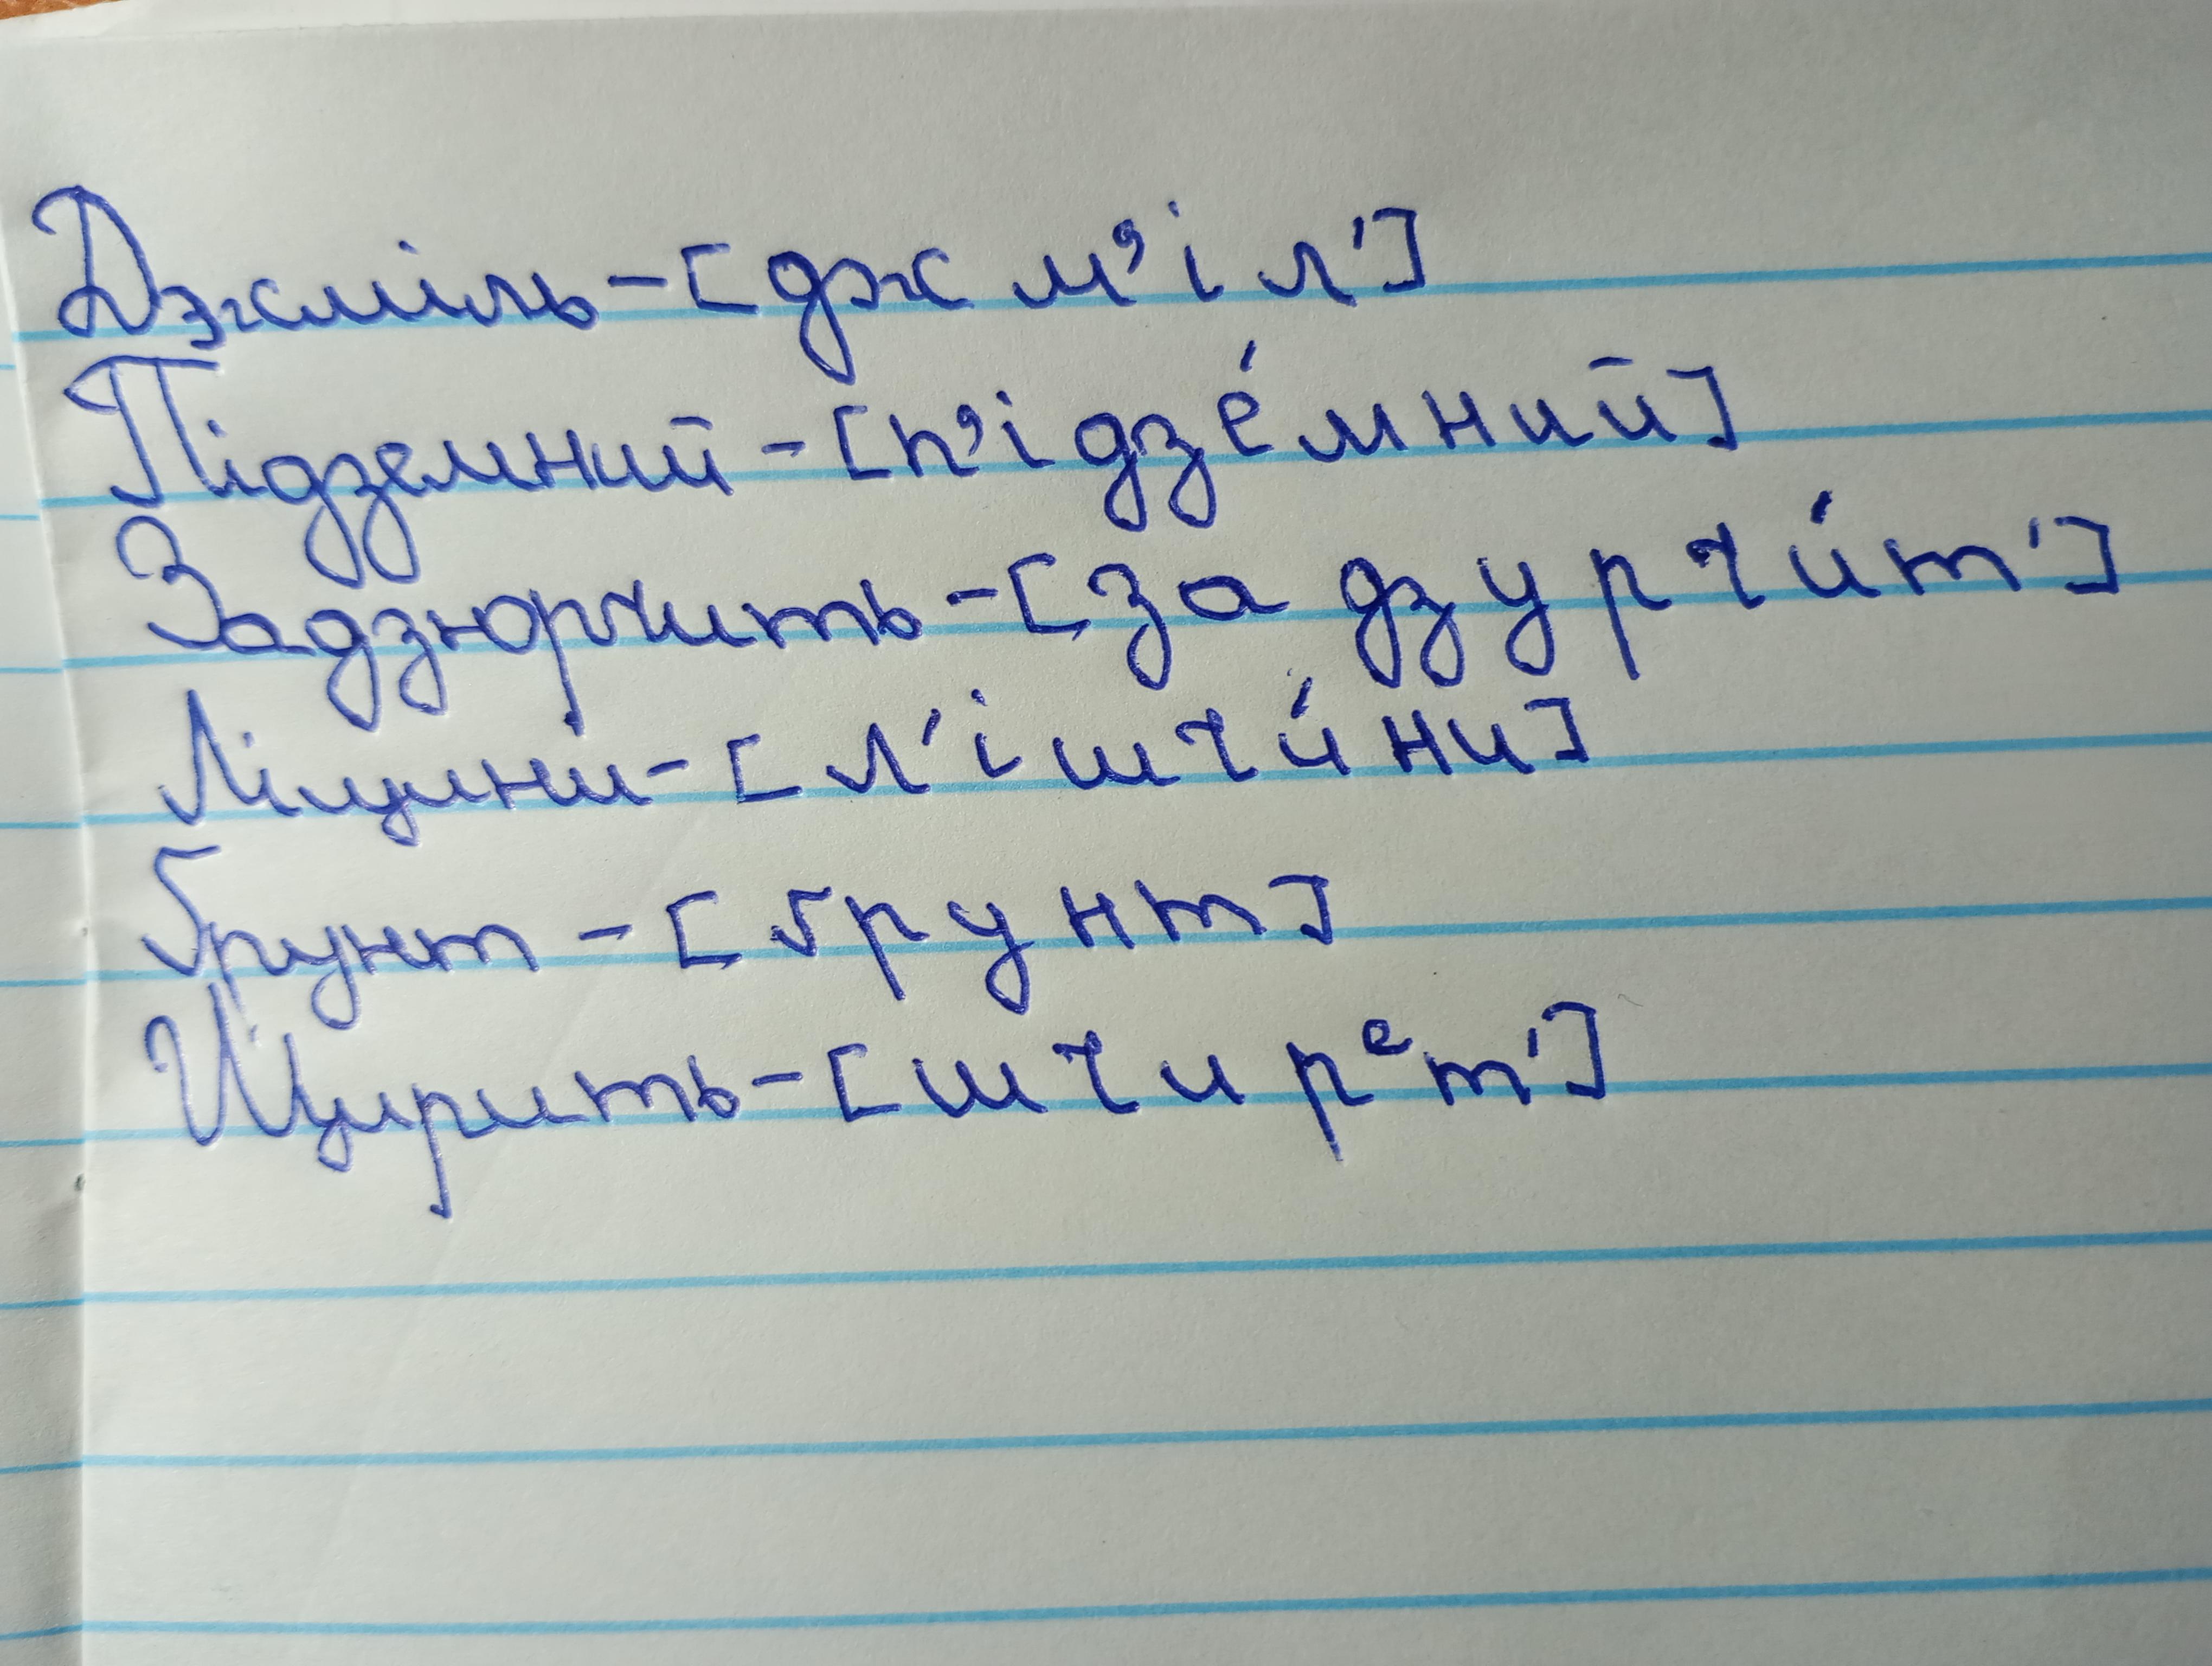 Джміль - [дж м’і л′]
Підземний - [п’і дзе́ мний]
Задзюрчить - [за дзурчи́т′]
Ліщини - [л′ішчи́ни]
Ґрунт - [ґрунт]
Щирить - [шчирᵉт′]